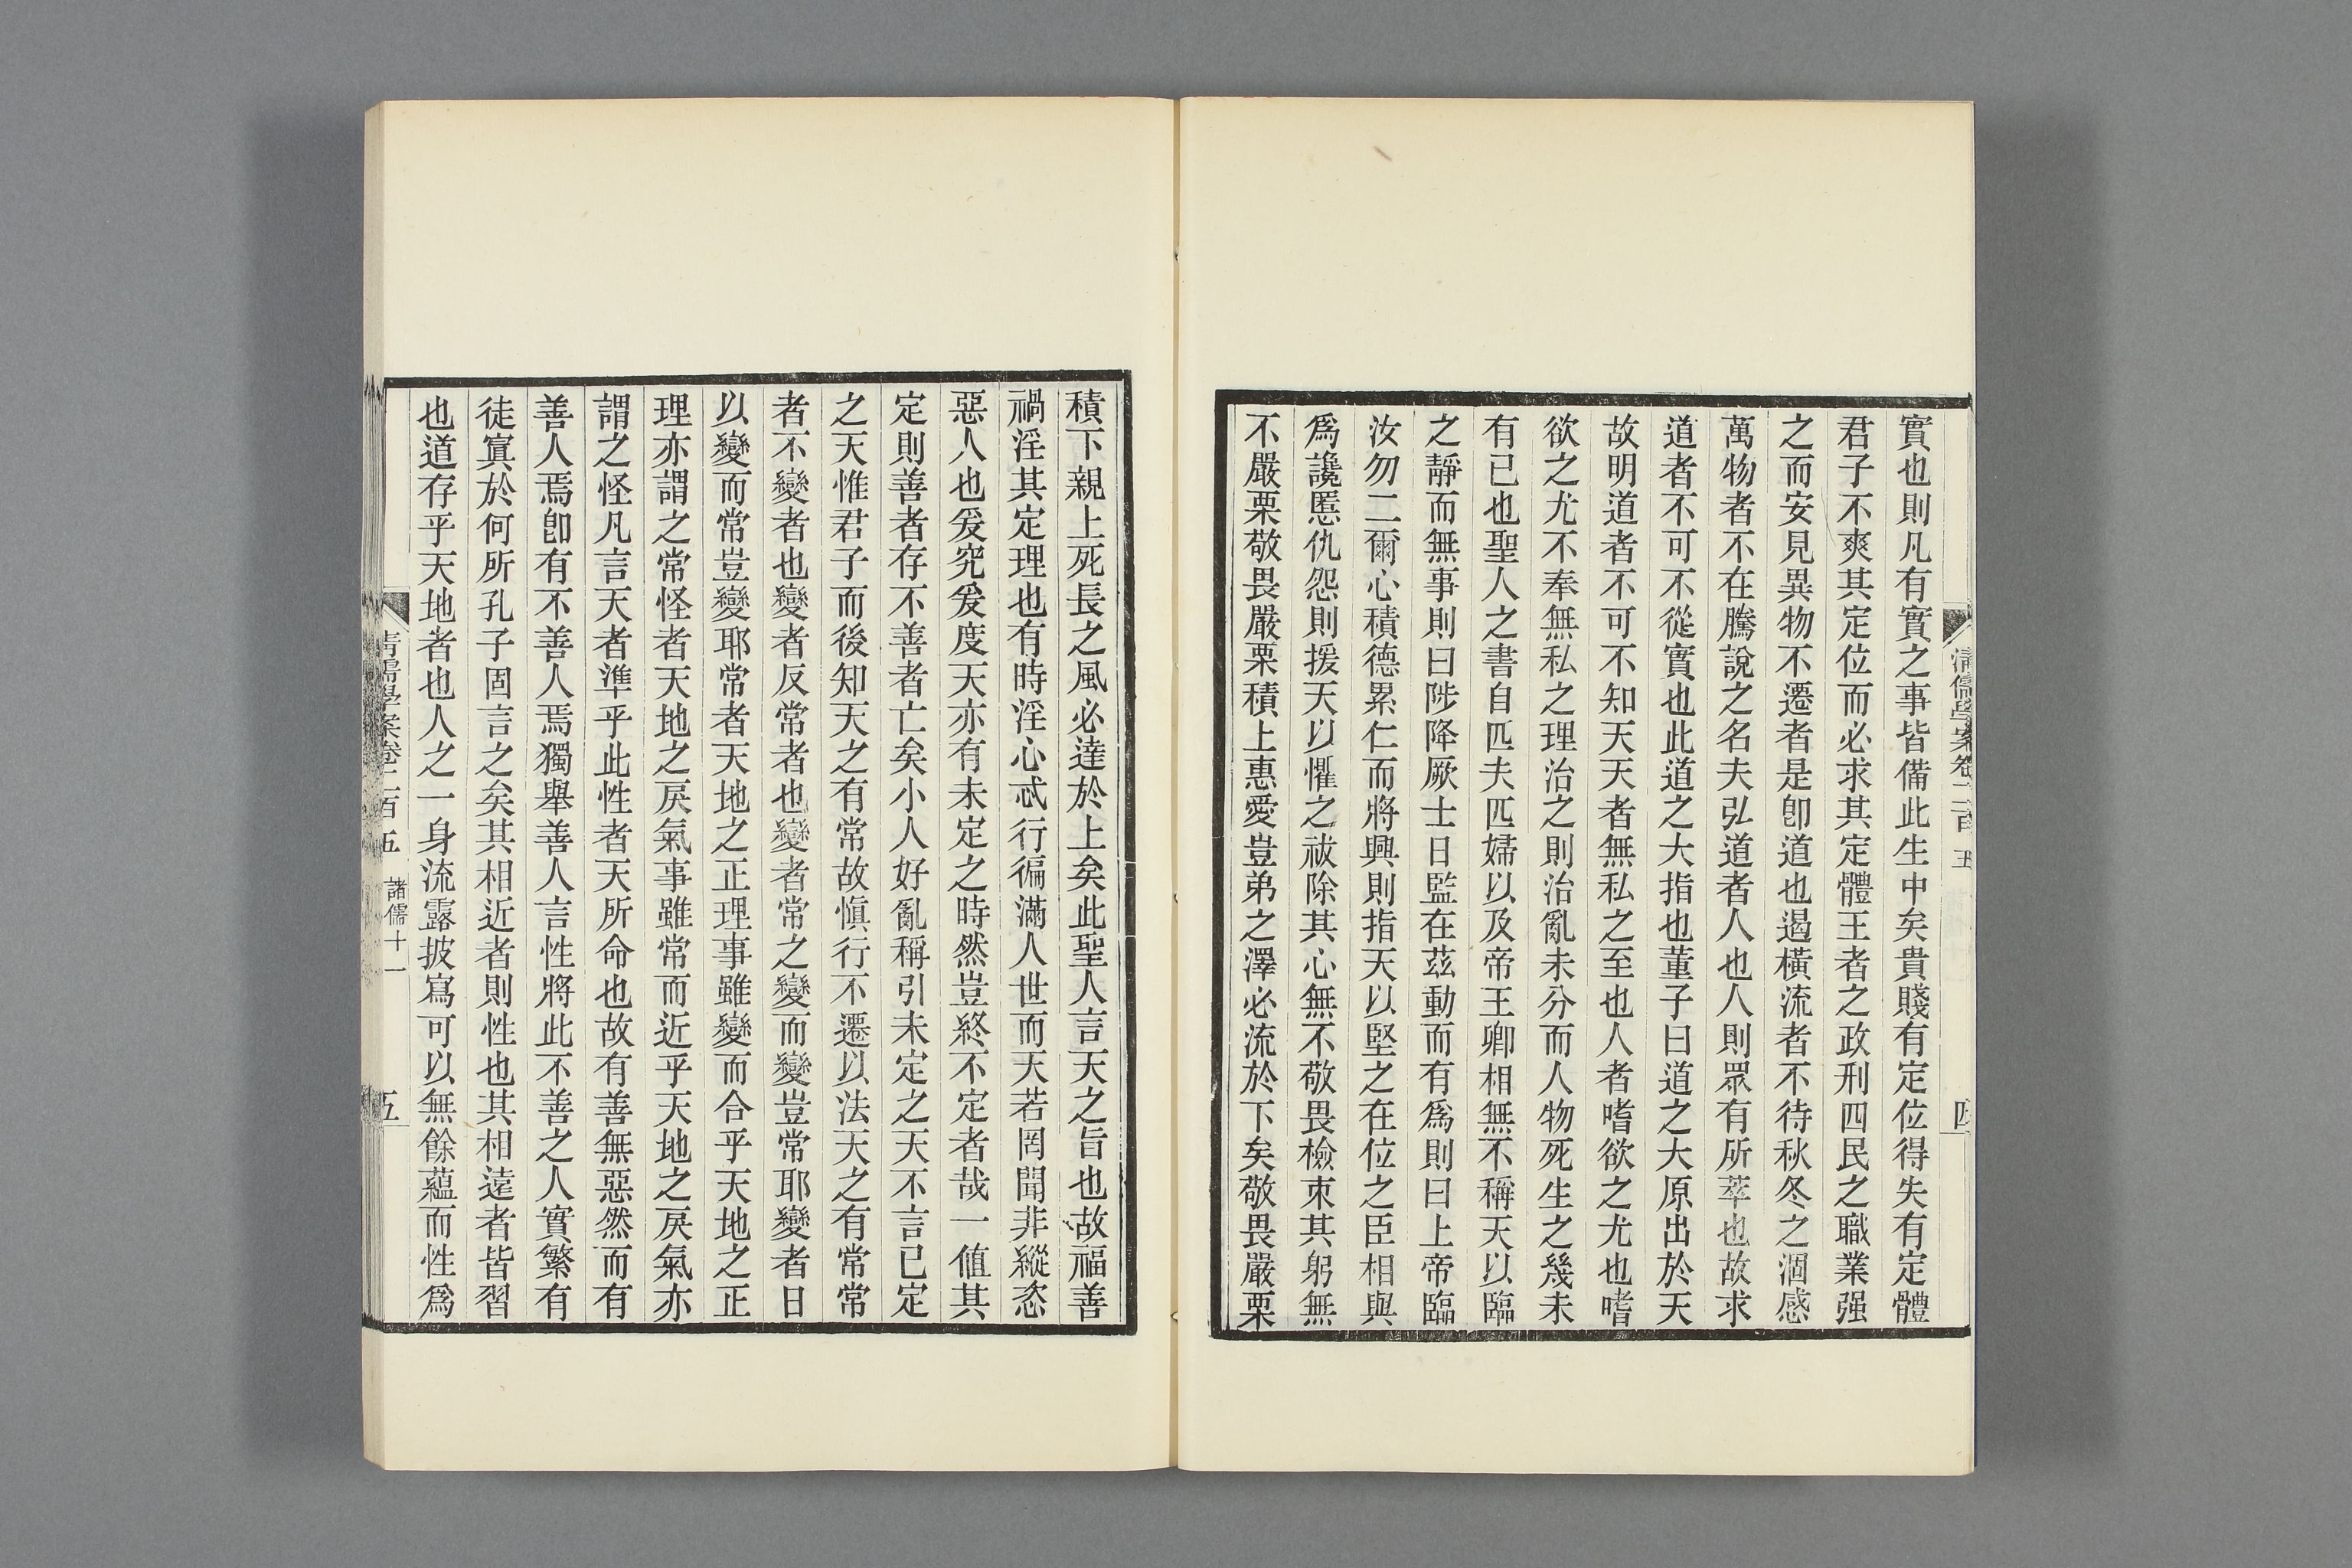 清儒學案卷二百五
四
實也則凡有實之事皆備此生中矣貴賤有定位得失有定體
君子不爽其定位而必求其定體王者之政刑四民之職業强
之而安見異物不遷者是卽道也遏橫流者不待秋冬之涸感
萬物者不在騰說之名夫弘道者人也人則眾有所萃也故求
道者不可不從實也此道之大指也董子曰道之大原出於天
故明道者不可不知天天者無私之至也人者嗜欲之尤也嗜
欲之尤不奉無私之理治之則治亂未分而人物死生之幾未
有已也聖人之書自匹夫匹婦以及帝王卿相無不稱天以臨
之靜而無事則曰陟降厥士日監在茲動而有爲則曰上帝臨
汝勿二爾心積德累仁而將興則指天以堅之在位之臣相與
爲讒慝仇怨則援天以懼之祓除其心無不敬畏檢束其躬無
不嚴栗敬畏嚴栗積上惠愛豈弟之澤必流於下矣敬畏嚴栗
積下親上死長之風必達於上矣此聖人言天之旨也故福善
禍淫其定理也有時淫心忒行徧滿人世而天若罔聞非縱恣
惡人也爰究爰度天亦有未定之時然豈終不定者哉一値其
定則善者存不善者亡矣小人好亂稱引未定之天不言已定
之天惟君子而後知天之有常故愼行不遷以法天之有常常
者不變者也變者反常者也變者常之變而變豈常耶變者日
以變而常豈變耶常者天地之正理事雖變而合乎天地之正
理亦謂之常怪者天地之戾氣事雖常而近乎天地之戾氣亦
謂之怪凡言天者準乎此性者天所命也故有善無惡然而有
善人焉卽有不善人焉獨舉善人言性將此不善之人實繁有
徒寘於何所孔子固言之矣其相近者則性也其相遠者皆習
也道存乎天地者也人之一身流露披寫可以無餘蘊而性爲
清儒學案卷二百五 諸儒十一
五